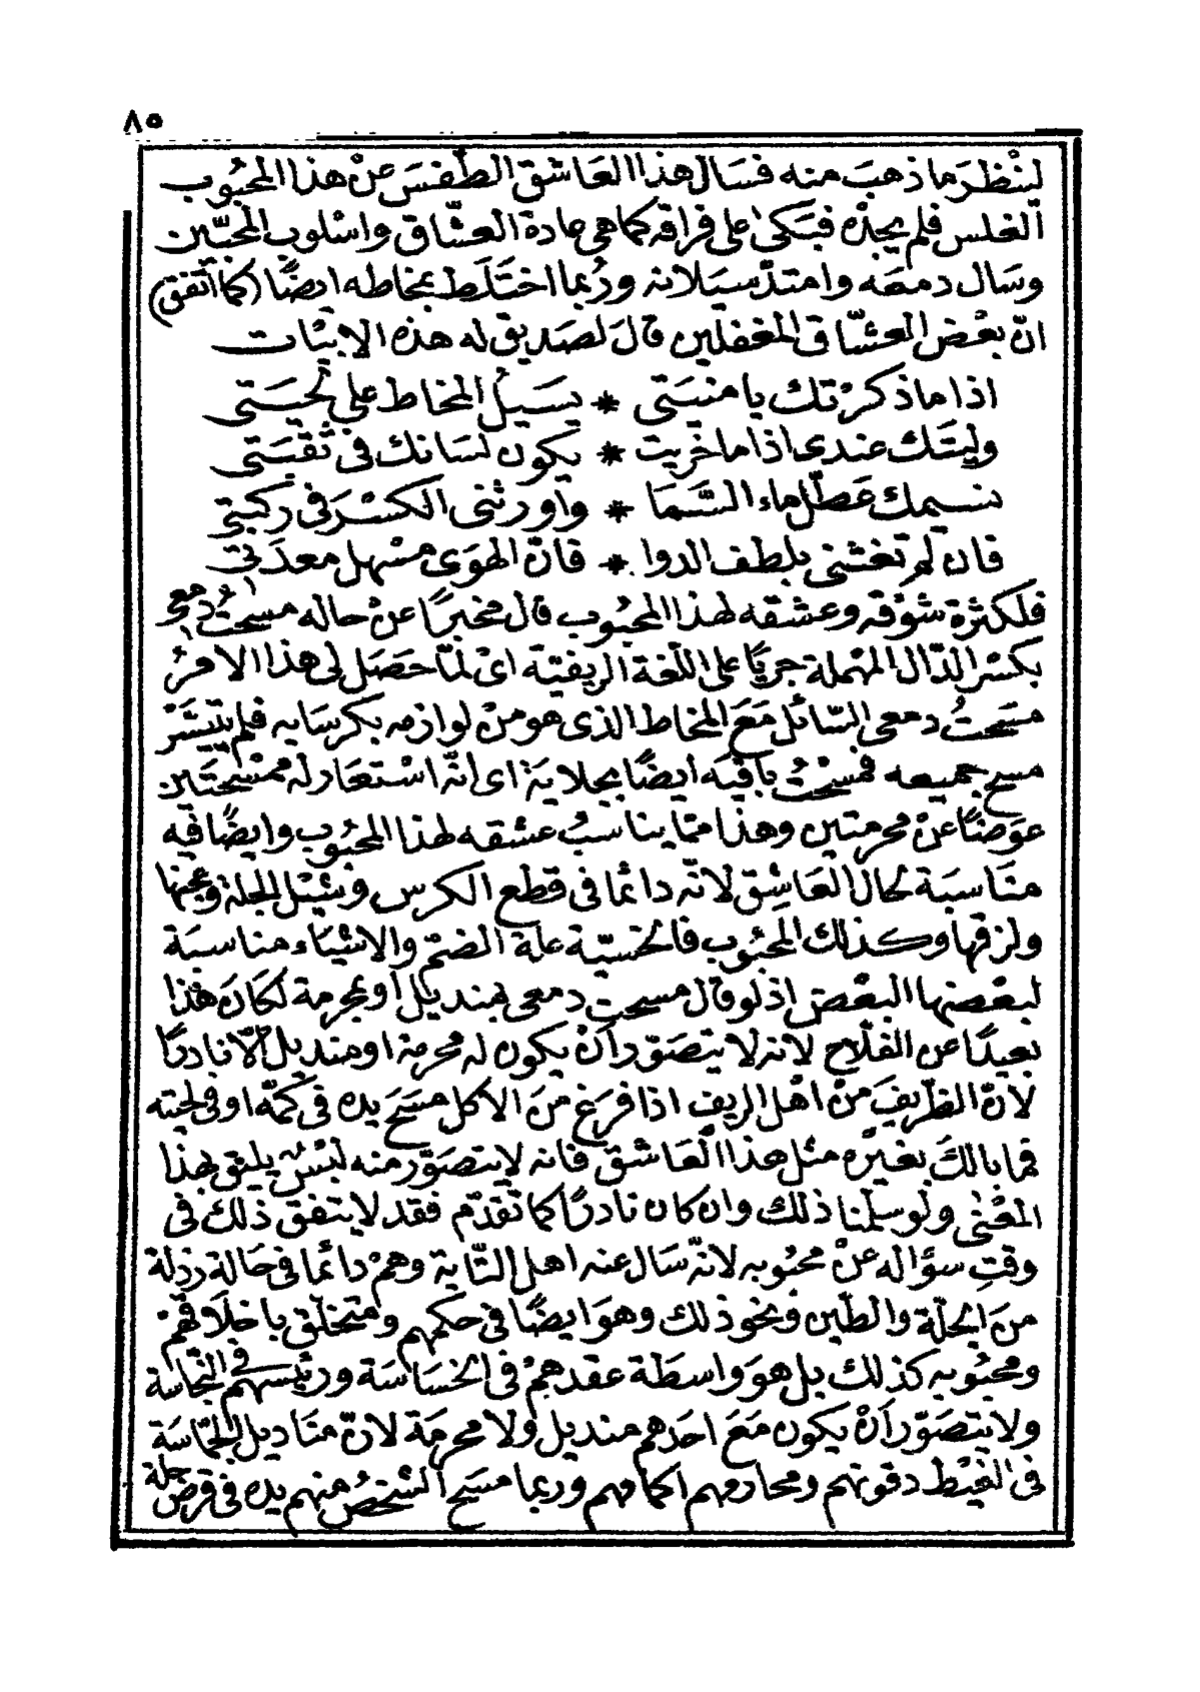 ٨٥
لينْظرَ ما ذهبَ منه فسَال هذا العَاشق الطّفسَ عنْ هذا المحبُوب
الغلس فلم يجدْه فبَكىٰ على فراقه كما هي عادة العشّاق واسْلوب المحبّين
وسَال دمعَه وامتدّ سيَلانه ورُبما اختَلَط بمخاطه ايضًا (كما اتّفق)
انّ بعْض العشّاق المغفلين قالَ لصَديق له هذه الابيْات
اذا ما ذكرْتك يا منيَتى * يسَيلُ المخاط على لحيَتى
وليتَك عندى اذا ما خريت * يكون لسَانك فى ثقبَتى
نسيمك عَطّل ماء السَّمَا * واورثنى الكسْرَ فى ركبتي
فان لم تغثنى بلطف الدوا * فانّ الهوَى مسْهل معدَتى
فلكثرة شوْقه وعشقه لهذا المحبُوب قال مخبرًا عنْ حاله مسحتُ دمعى
بكسْر الدّال المهْملة جريًا على اللّغة الريفيّة اىْ لمّا حصَل لى هذا الامرُ
مسَحتُ دمعى السّائل مَعَ المخاط الذى هو منْ لوازمه بكرسَايه فلم يتيسَّرْ
مسح جميعه فمسحْتُ باقيَه ايضًا بجلايَة اى انّه اسْتعَار له ممْسحتَين
عوَضًا عنْ محرمتين وهذا ممّا يناسبُ عشقه لهذا المحبُوب وايضًا فيه
منَاسبَة لحال العَاشِق لانّه دائما فى قطع الكرس وشيْل الجلة وعجنها
ولزقها وكذلك المحبُوب فالجنسيّة علة الضمّ والاشيَاء مناسبَة
لبعْضها البعْض اذ لو قال مسحت دمعى بمنديل او بمحرمة لكَانَ هذا
بعيدًا عن الفلّاح لانه لا يتصَوّر أنْ يكون له محرمة او منديل الّا نادرًا
لانّ الظّريفَ منْ اهْل الريف اذا فرَغ منَ الاكل مسَحَ يده فى كمّه او فى لحيته
فما بالكَ بغيْره مثل هذا العَاشق فانه لا يتصَوّر منه لبْس شيء يليق بهذا
المعْنٰى ولو سلمنا ذلك وان كان نادرًا كما تقدّم فقد لا يتفق ذلك فى
وقتِ سؤاله عنْ محبُوبه لانّه سَال عنه اهل التّاية وهمْ دائما فى حَالة رذلة
منَ الجلّة والطّين ونحو ذلك وهوَ ايضًا فى حكمهم ومتخلّق باخلَاقهمْ
ومحبُوبه كذلك بل هوَ واسطَة عقدهمْ فى الخسَاسَة ورئيسهم في النّجاسة
ولا يتصَوّر اَنْ يكون مَعَ احَدهم منديل ولا محرمَة لانّ منَاديل الجمّاسَة
فى الغيْط دقونهم ومحارمهم اكمامهم وربما مسَح الشّخصُ منهم يده فى قرص جلة